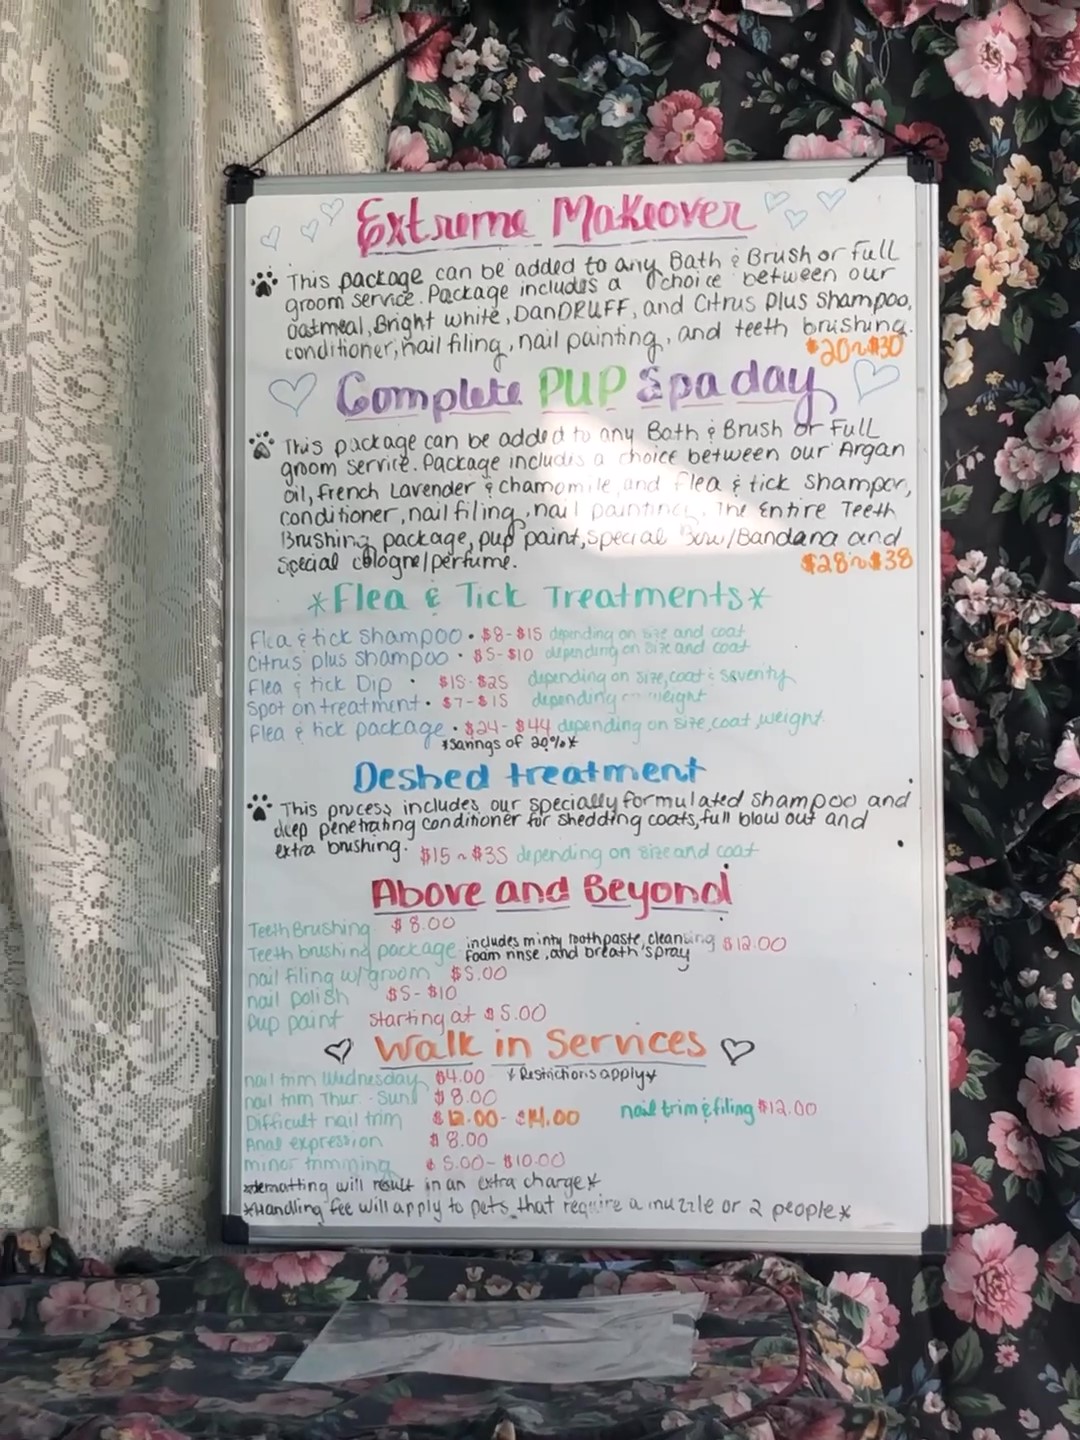 Extreme Makeover
This package can be added to any Bath & Brush or full
groom service. Package includes a choice between our
oatmeal, Bright white, DanDRUFF, and Citrus Plus Shampoo,
conditioner, nail filing, nail painting, and teeth brushing.
$20~$30
Complete PUP Spa day
This package can be added to any Bath & Brush or Full
groom service. Package includes a choice between our Argan
oil, French Lavender & chamomile, and flea & tick Shampoo,
conditioner, nail filing, nail painting, The Entire Teeth
Brushing package, pup paint, special Bow/Bandana and
special cologne/perfume.
$28~$38
*Flea & Tick Treatments*
Flea & tick Shampoo • $8-$15 depending on size and coat
Citrus plus shampoo • $5-$10 depending on size and coat
Flea & tick Dip • $15-$25 depending on size, coat & severity
Spot on treatment • $7-$15 depending on weight
Flea & tick package • $24-$44 depending on size, coat, weight
*Savings of 20%*
Deshed treatment
This process includes our specially formulated shampoo and
deep penetrating conditioner for shedding coats, full blow out and
extra brushing. $15~$35 depending on size and coat
Above and Beyond
Teeth Brushing $8.00
Teeth brushing package - includes minty toothpaste, cleansing $12.00
foam rinse, and breath spray
nail filing w/groom $5.00
nail polish $5-$10
Pup paint starting at $5.00
Walk in Services
nail trim Wednesday $4.00 *Restrictions apply*
nail trim Thur. - Sun $8.00
nail trim & filing $12.00
Difficult nail trim $12.00-$14.00
Anal expression $8.00
minor trimming $5.00-$10.00
*dematting will result in an extra charge*
*Handling fee will apply to pets that require a muzzle or 2 people*